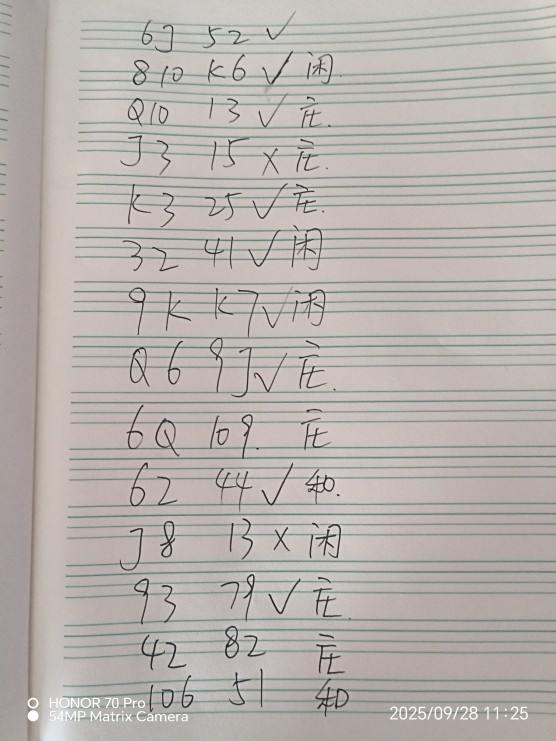 6J 52 ✓
8 10 K6 ✓ 闲.
Q10 13 ✓ 庄.
J3 15 × 庄.
K3 25 ✓ 庄.
32 41 ✓ 闲
9K K7 ✓ 闲
Q6 9J ✓ 庄.
6Q 109. 庄
62 44 ✓ 和.
J8 13 × 闲
93 79 ✓ 庄.
42 82 庄
106 51 和
HONOR 70 Pro
54MP Matrix Camera
2025/09/28 11:25